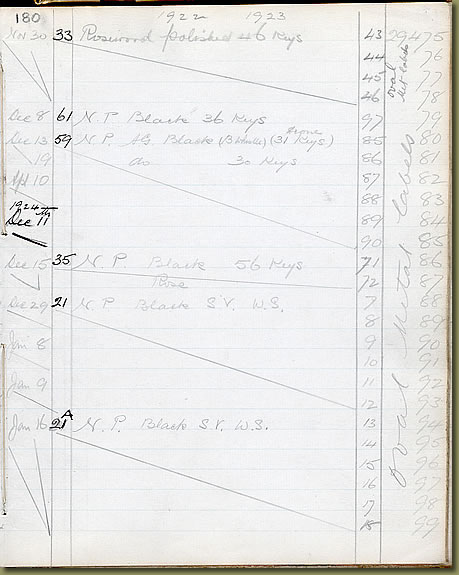 180 1922 1923
Nov 30 33 Rosewood polished 46 Keys 43 29475
44 76
45 77
46 78
Dec 8 61 N. P. Black 36 Keys 97 79
Dec 13 59 N. P. AG. Black (31 Keys) 85 80
19 do 30 Keys 86 81
10 87 82
88 83
1924
Dec 11th 89 84
90 85
Dec 15 35 N. P. Black 56 Keys 71 86
72 87
Dec 29 21 N. P. Black S.V. W.S. 7 88
8 89
Jan 8 9 90
10 91
Jan 9 11 92
12 93
Jan 16 21A N. P. Black S.V. W.S. 13 94
14 95
15 96
16 97
17 98
18 99
oval
Oval Metal Labels